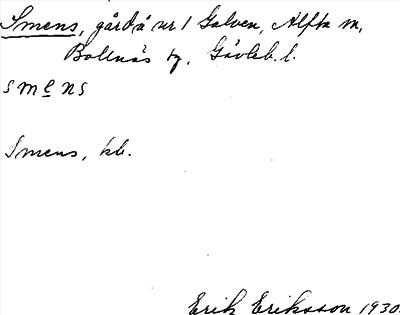 Smens, gård å nr 1 Galven, Alfta sn,
Bollnäs tg, Gävleb. l.
smens
Smens, kb.
Erik Eriksson 1930.